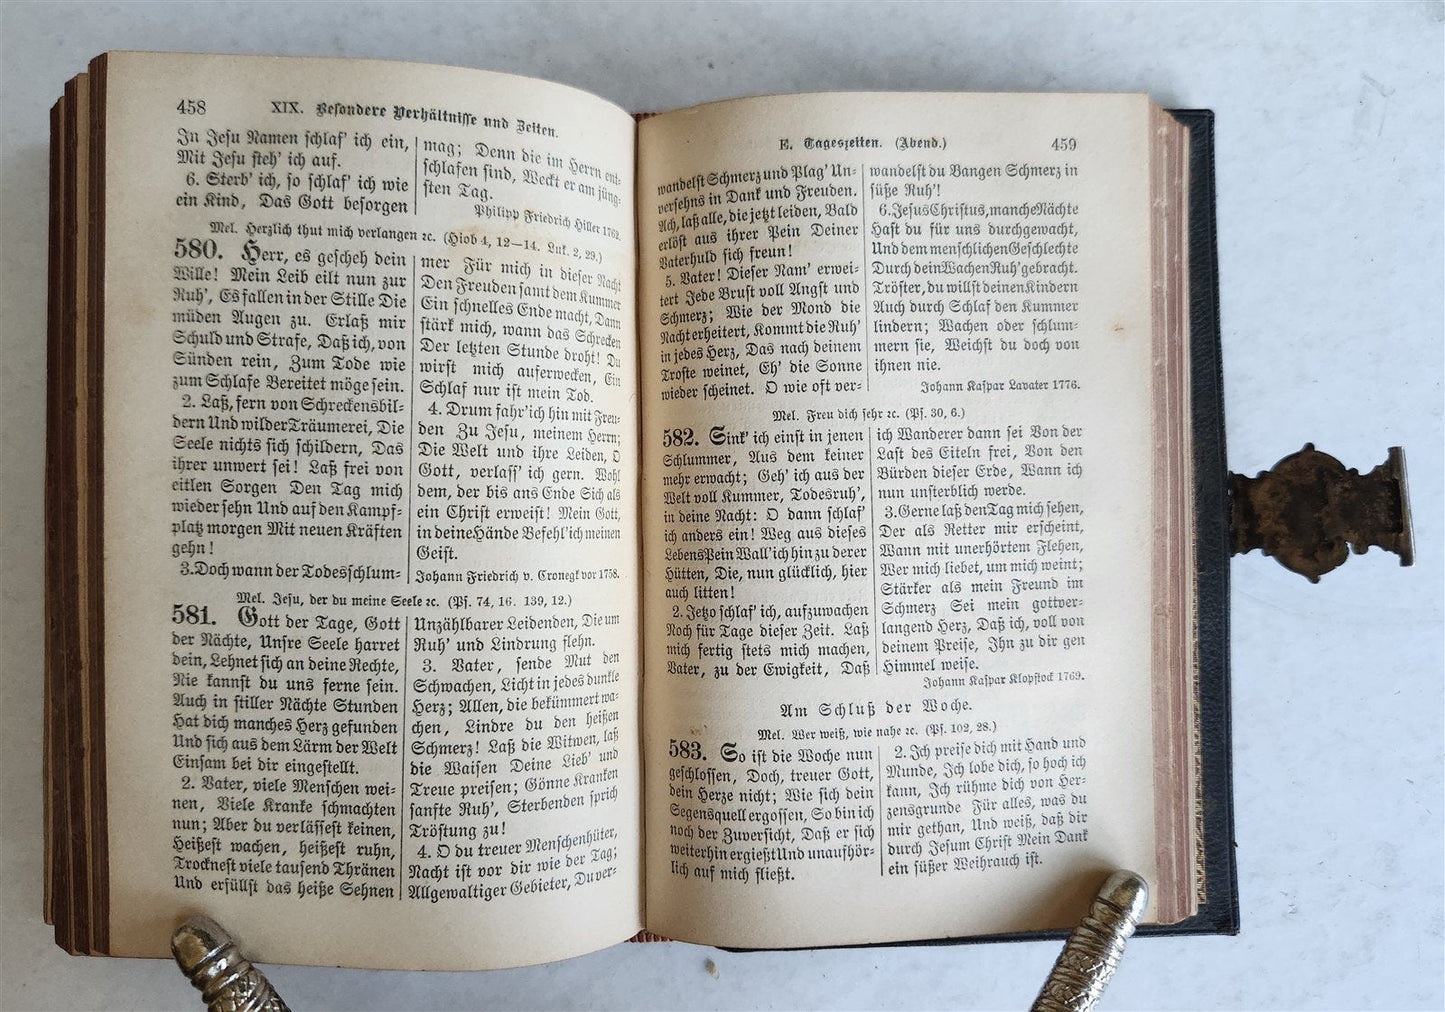 458 XIX. Besondere Verhältnisse und Zeiten.
In Jesu Namen schlaf' ich ein,
Mit Jesu steh' ich auf.
6. Sterb' ich, so schlaf' ich wie
ein Kind, Das Gott besorgen
mag; Denn die im Herrn ent-
schlafen sind, Weckt er am jüng-
sten Tag.
Philipp Friedrich Hiller 1762.
Mel. Herzlich thut mich verlangen ꝛc. (Hiob 4, 12—14. Luk. 2, 29.)
580. Herr, es gescheh dein
Wille! Mein Leib eilt nun zur
Ruh', Es fallen in der Stille Die
müden Augen zu. Erlaß mir
Schuld und Strafe, Daß ich, von
Sünden rein, Zum Tode wie
zum Schlafe Bereitet möge sein.
2. Laß, fern von Schreckensbil-
dern Und wilder Träumerei, Die
Seele nichts sich schildern, Das
ihrer unwert sei! Laß frei von
eitlen Sorgen Den Tag mich
wieder sehn Und auf den Kampf-
platz morgen Mit neuen Kräften
gehn!
3. Doch wann der Todesschlum-
mer Für mich in dieser Nacht
Den Freuden samt dem Kummer
Ein schnelles Ende macht, Dann
stärk mich, wann das Schrecken
Der letzten Stunde droht! Du
wirst mich auferwecken, Ein
Schlaf nur ist mein Tod.
4. Drum fahr' ich hin mit Freu-
den Zu Jesu, meinem Herrn;
Die Welt und ihre Leiden, O
Gott, verlass' ich gern. Wohl
dem, der bis ans Ende Sich als
ein Christ erweist! Mein Gott,
in deine Hände Befehl' ich meinen
Geist.
Johann Friedrich v. Cronegk vor 1758.
Mel. Jesu, der du meine Seele ꝛc. (Ps. 74, 16. 139, 12.)
581. Gott der Tage, Gott
der Nächte, Unsre Seele harret
dein, Lehnet sich an deine Rechte,
Nie kannst du uns ferne sein.
Auch in stiller Nächte Stunden
Hat dich manches Herz gefunden
Und sich aus dem Lärm der Welt
Einsam bei dir eingestellt.
2. Vater, viele Menschen wei-
nen, Viele Kranke schmachten
nun; Aber du verlässest keinen,
Heißest wachen, heißest ruhn,
Trocknest viele tausend Thränen
Und erfüllst das heiße Sehnen
Unzählbarer Leidenden, Die um
Ruh' und Lindrung flehn.
3. Vater, sende Mut den
Schwachen, Licht in jedes dunkle
Herz; Allen, die bekümmert wa-
chen, Lindre du den heißen
Schmerz! Laß die Witwen, laß
die Waisen Deine Lieb' und
Treue preisen; Gönne Kranken
sanfte Ruh', Sterbenden sprich
Tröstung zu!
4. O du treuer Menschenhüter,
Nacht ist vor dir wie der Tag;
Allgewaltiger Gebieter, Du ver-
E. Tageszeiten. (Abend.) 459
wandelst Schmerz und Plag' Un-
versehns in Dank und Freuden.
Ach, laß alle, die jetzt leiden, Bald
erlöst aus ihrer Pein Deiner
Vaterhuld sich freun!
5. Vater! Dieser Nam' erwei-
tert Jede Brust voll Angst und
Schmerz; Wie der Mond die
Nacht erheitert, Kommt die Ruh'
in jedes Herz, Das nach deinem
Troste weinet, Eh' die Sonne
wieder scheinet. O wie oft ver-
wandelst du Bangen Schmerz in
süße Ruh'!
6. Jesus Christus, manche Nächte
Hast du für uns durchgewacht,
Und dem menschlichen Geschlechte
Durch dein Wachen Ruh' gebracht.
Tröster, du willst deinen Kindern
Auch durch Schlaf den Kummer
lindern; Wachen oder schlum-
mern sie, Weichst du doch von
ihnen nie.
Johann Kaspar Lavater 1776.
Mel. Freu dich sehr ꝛc. (Ps. 30, 6.)
582. Sink' ich einst in jenen
Schlummer, Aus dem keiner
mehr erwacht; Geh' ich aus der
Welt voll Kummer, Todesruh',
in deine Nacht: O dann schlaf'
ich anders ein! Weg aus dieses
Lebens Pein Wall' ich hin zu derer
Hütten, Die, nun glücklich, hier
auch litten!
2. Jetzo schlaf' ich, aufzuwachen
Noch für Tage dieser Zeit. Laß
mich fertig stets mich machen,
Vater, zu der Ewigkeit, Daß
ich Wanderer dann sei Von der
Last des Eiteln frei, Von den
Bürden dieser Erde, Wann ich
nun unsterblich werde.
3. Gerne laß den Tag mich sehen,
Der als Retter mir erscheint,
Wann mit unerhörtem Flehen,
Wer mich liebet, um mich weint;
Stärker als mein Freund im
Schmerz Sei mein gottver-
langend Herz, Daß ich, voll von
deinem Preise, Ihn zu dir gen
Himmel weise.
Johann Kaspar Klopstock 1769.
Am Schluß der Woche.
Mel. Wer weiß, wie nahe ꝛc. (Ps. 102, 28.)
583. So ist die Woche nun
geschlossen, Doch, treuer Gott,
dein Herze nicht; Wie sich dein
Segensquell ergossen, So bin ich
noch der Zuversicht, Daß er sich
weiterhin ergießt Und unaufhör-
lich auf mich fließt.
2. Ich preise dich mit Hand und
Munde, Ich lobe dich, so hoch ich
kann, Ich rühme dich von Her-
zensgrunde Für alles, was du
mir gethan, Und weiß, daß dir
durch Jesum Christ Mein Dank
ein süßer Weihrauch ist.